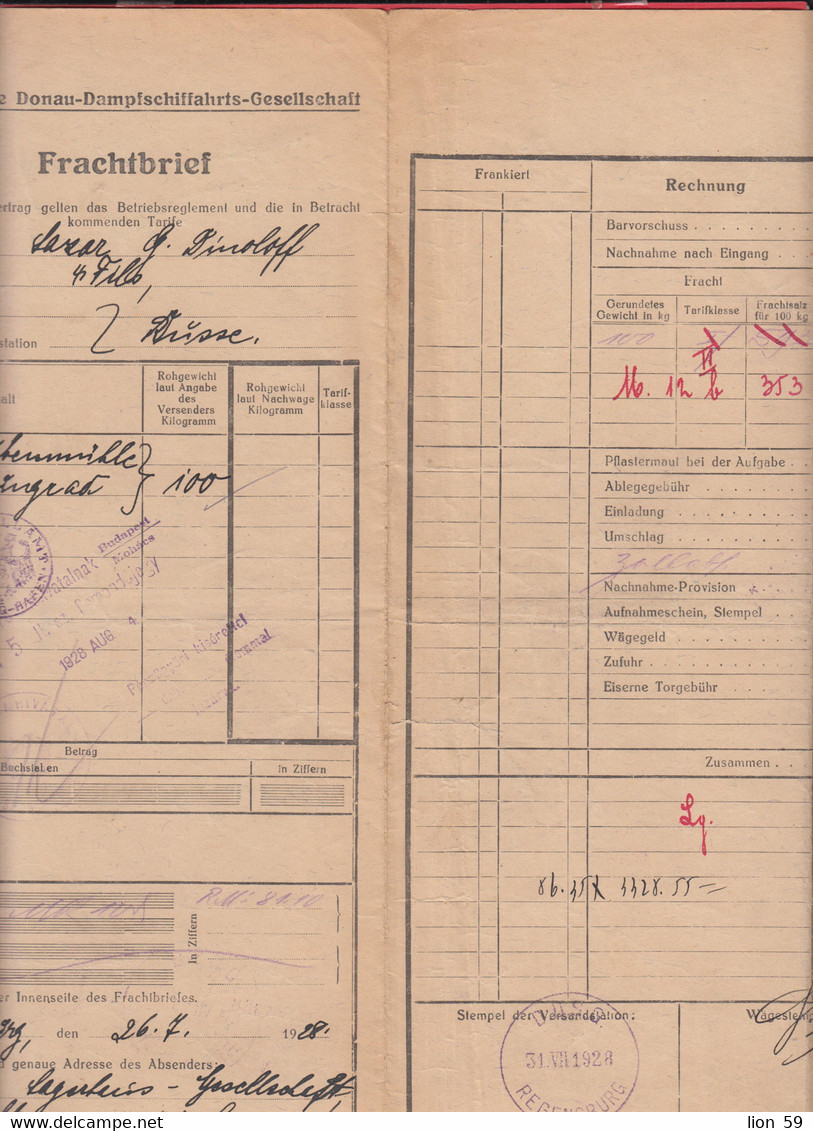 e Donau-Dampfschiffahrts-Gesellschaft
Frachtbrief
ertrag gelten das Betriebsreglement und die in Betracht
kommenden Tarife
Lazar G. Dinoloff
& Fils,
station
Düsse.
alt
Rohgewicht
laut Angabe
des
Versenders
Kilogramm
Rohgewicht
laut Nachwage
Kilogramm
Tarif-
klasse
100
Budapest
Mohács
1928 AUG 4.
Betrag
Buchstaben
in Ziffern
RM: 81.10
In Ziffern
er Innenseite des Frachtbriefes.
rg, den 26.7. 1928.
d genaue Adresse des Absenders:
Lagerhaus-Gesellschaft
Frankiert
Rechnung
Barvorschuss
Nachnahme nach Eingang
Fracht
Gerundetes
Gewicht in kg
Tarifklasse
Frachtsatz
für 100 kg
100
II
M. 12 b 353
Pflastermaut bei der Aufgabe
Ablegegebühr
Einladung
Umschlag
Nachnahme-Provision
Aufnahmeschein, Stempel
Wägegeld
Zufuhr
Eiserne Torgebühr
Zusammen
Lg.
Stempel der Versandstation:
Wägestemp
DDSG
31.VII.1928
REGENSBURG
lion 59